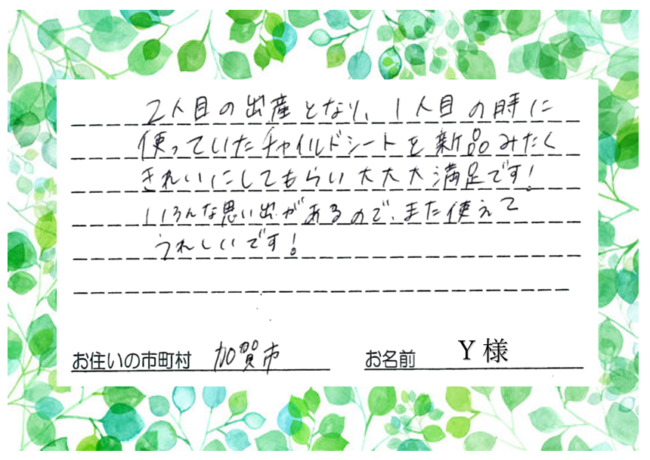 2人目の出産となり、1人目の時に
使っていたチャイルドシートを新品みたく
きれいにしてもらい大大大満足です!
いろんな思い出があるので、また使えて
うれしいです!
お住いの市町村 加賀市 お名前 Y様